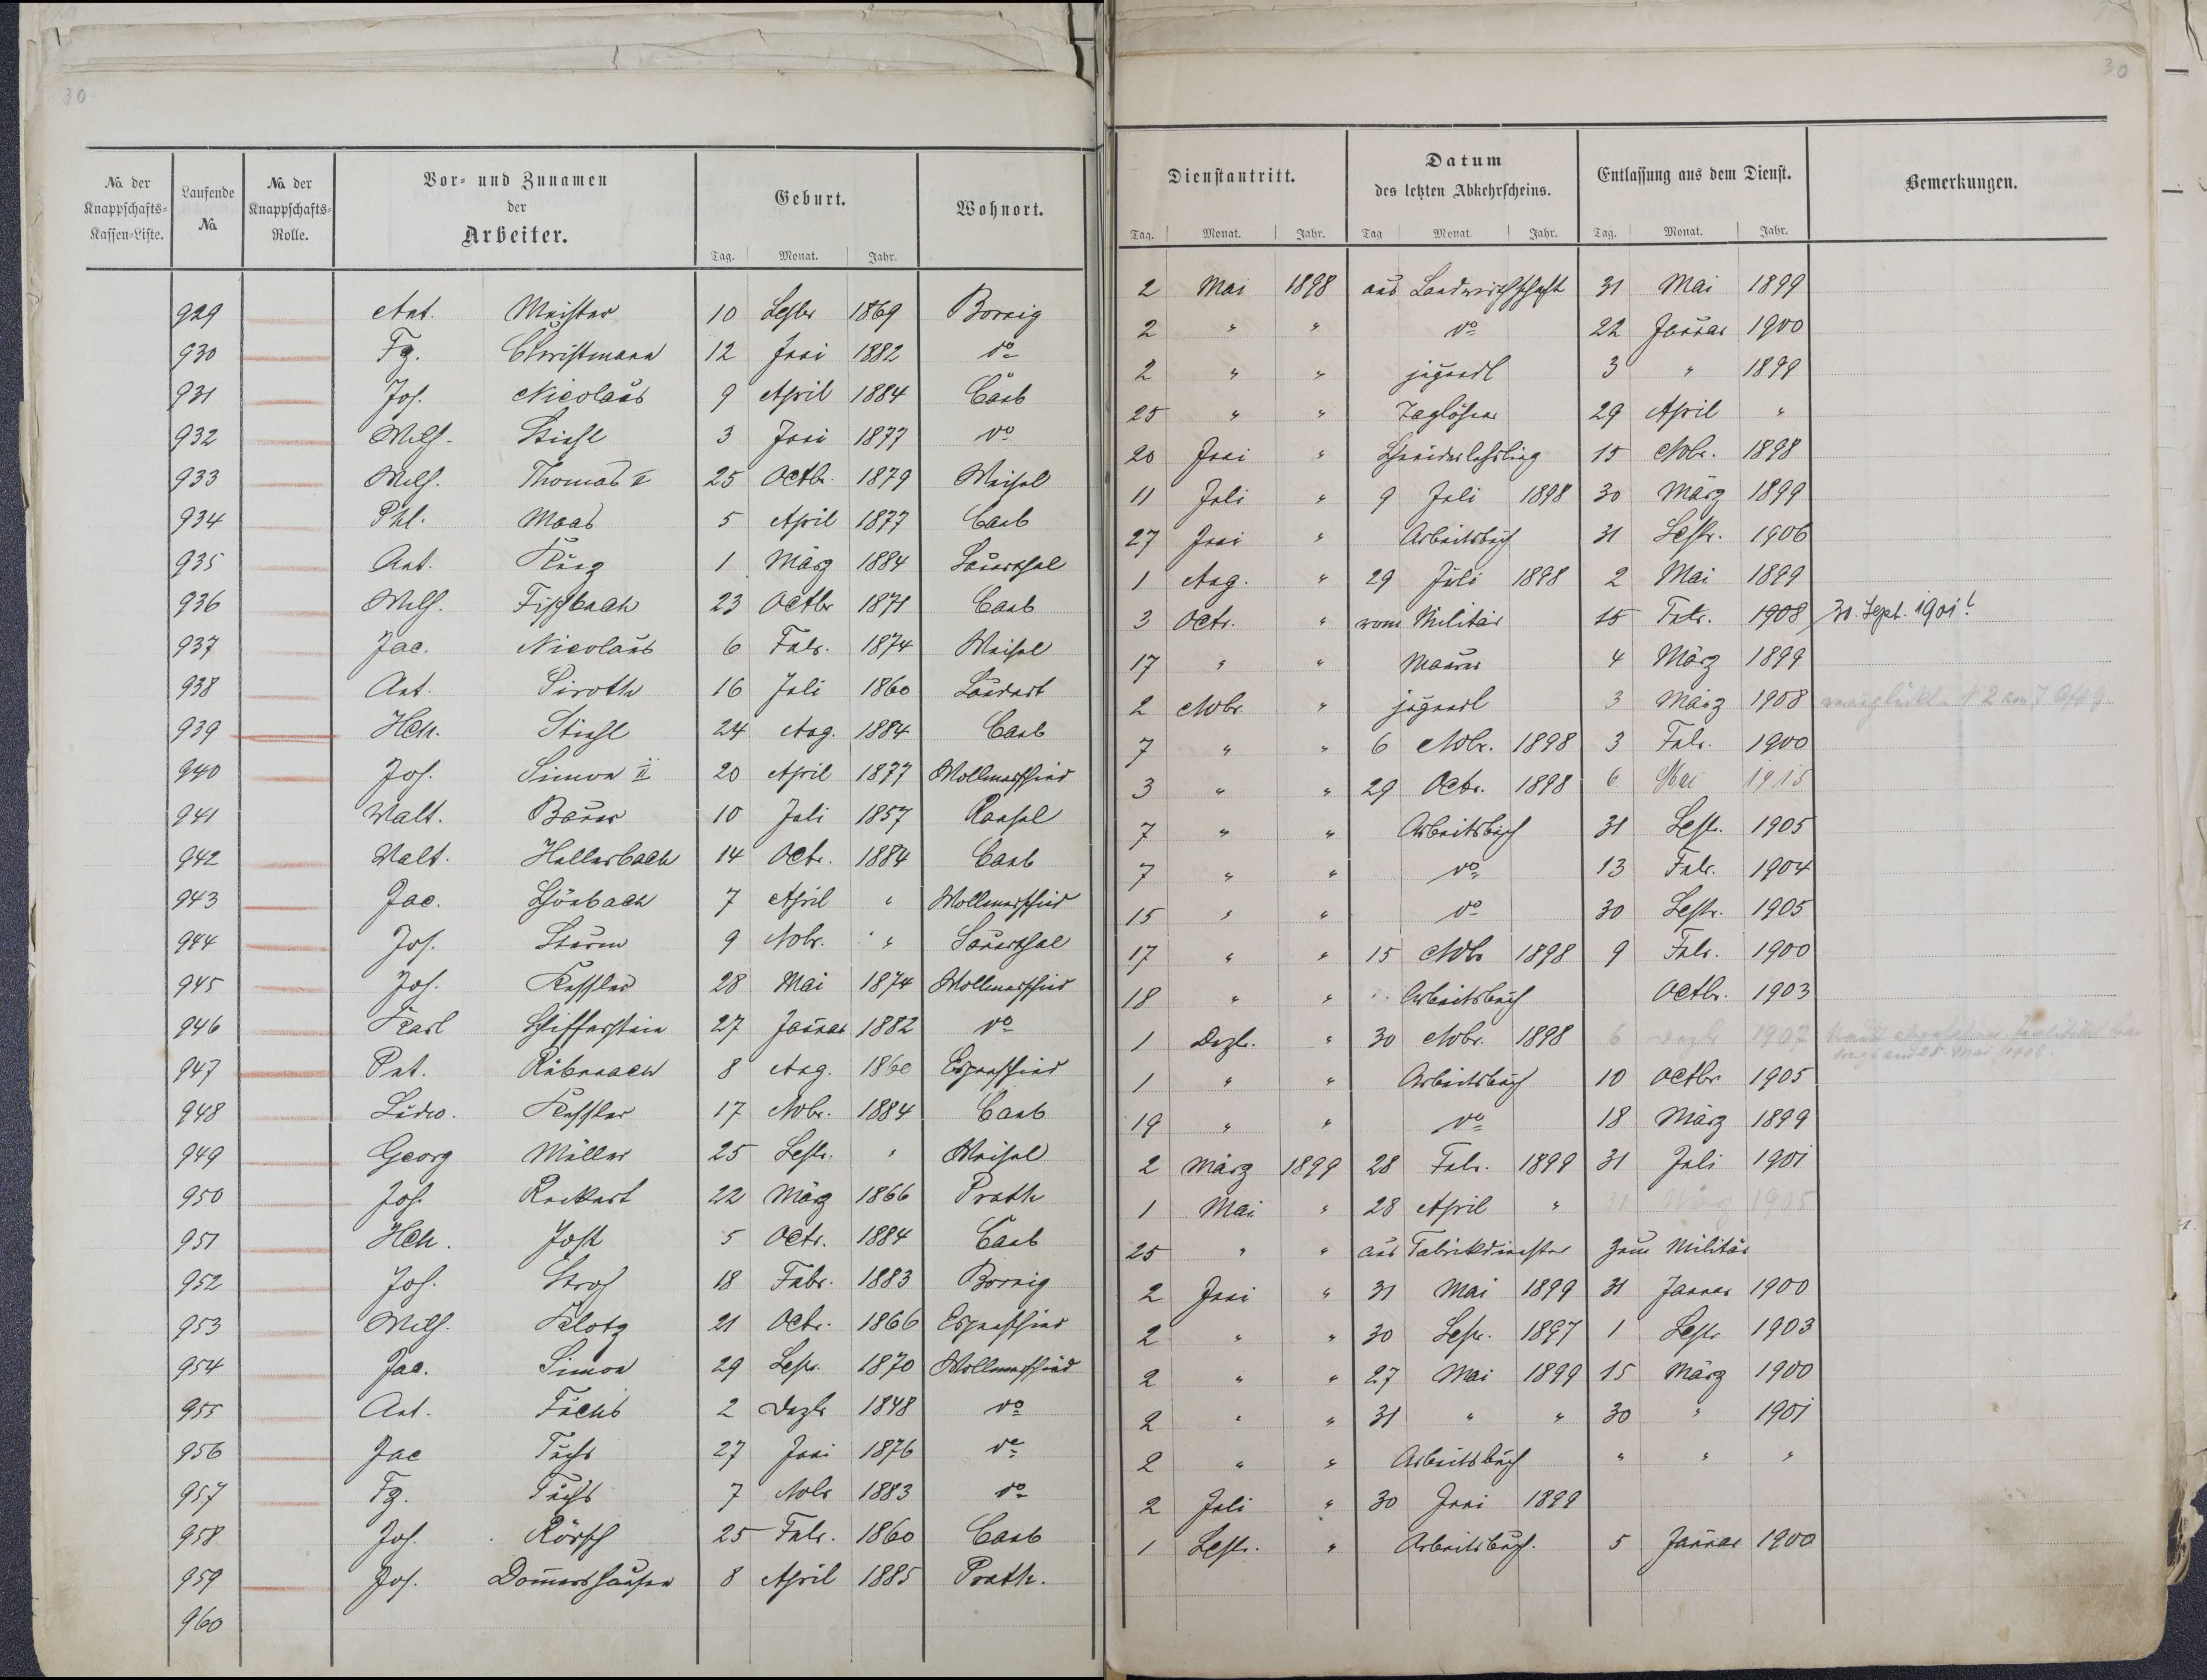 30
30
No. der Knappschafts-Kassen-Liste. Laufende No. No. der Knappschafts-Rolle. Vor- und Zunamen der Arbeiter. Geburt. Wohnort. Dienstantritt. Datum des letzten Abkehrscheins. Entlassung aus dem Dienst. Bemerkungen.
Tag. Monat. Jahr. Tag. Monat. Jahr. Tag Monat. Jahr. Tag. Monat. Jahr.
929 Ant. Meister 10 Septbr 1869 Bornig 2 Mai 1898 aus Landwirthschaft 31 Mai 1899
930 Fz. Christmann 12 Juni 1882 do 2 " " do 22 Januar 1900
931 Jos. Nicolaus 9 April 1884 Caub 2 " " jugendl 3 " 1899
932 Wilh. Stiehl 3 Juni 1877 do 25 " " Taglöhner 29 April "
933 Wilh. Thomas II 25 Octbr. 1879 Weisel 20 Juni " Schneiderlehrling 15 Nvbr. 1898
934 Phl. Maas 5 April 1877 Caub 11 Juli " 9 Juli 1898 30 März 1899
935 Ant. Kunz 1 März 1884 Sauerthal 27 Juni " Arbeitsbuch 31 Septr. 1906
936 Wilh. Fischbach 23 Octbr 1871 Caub 1 Aug. " 29 Juli 1898 2 Mai 1899
937 Jac. Nicolaus 6 Febr. 1874 Weisel 3 Octr. " vom Militär 15 Febr. 1908 30. Sept. 1901!
938 Ant. Piroth 16 Juli 1860 Laudert 17 " " Maurer 4 März 1899
939 Hch. Stiehl 24 Aug. 1884 Caub 2 Nvbr " jugendl 3 März 1908
940 Jos. Simon II 20 April 1877 Wollmerschied 7 " " 6 Nvbr. 1898 3 Febr. 1900
941 Valt. Bauer 10 Juli 1857 Ransel 3 " " 29 Octbr. 1898 6 Mai 1915
942 Valt. Hellerbach 14 Octr. 1884 Caub 7 " " Arbeitsbuch 31 Septr. 1905
943 Jac. Schönbach 7 April " Wollmerschied 7 " " do 13 Febr. 1904
944 Jos. Sturm 9 Nvbr. " Sauerthal 15 " " do 30 Septr. 1905
945 Jos. Kessler 28 Mai 1874 Wollmerschied 17 " " 15 Nvbr 1898 9 Febr. 1900
946 Karl Schifferstein 27 Januar 1882 do 18 " " Arbeitsbuch Octbr. 1903
947 Pet. Rübenach 8 Aug. 1860 Espenschied 1 Dezbr. " 30 Nvbr. 1898 6 Dezbr 1907
948 Ludw. Kessler 17 Nvbr. 1884 Caub 1 " " Arbeitsbuch 10 Octbr 1905
949 Georg Müller 25 Septr. " Weisel 19 " " do 18 März 1899
950 Jos. Rockert 22 März 1866 Prath 2 März 1899 28 Febr. 1899 31 Juli 1901
951 Hch. Jost 5 Octr. 1884 Caub 1 Mai " 28 April " 31 März 1905
952 Jos. Stroh 18 Febr. 1883 Bornig 25 " " aus Fabrikdienster zum Militär
953 Wilh. Klotz 21 Octr. 1866 Espenschied 2 Juni " 31 Mai 1899 31 Januar 1900
954 Jac. Simon 29 Septr. 1870 Wollmerschied 2 " " 30 Septr. 1897 1 Septr 1903
955 Ant. Fuchs 2 Dezbr 1848 do 2 " " 27 Mai 1899 15 März 1900
956 Jac Fuchs 27 Juni 1876 do 2 " " 31 " " 30 " 1901
957 Fz. Fuchs 7 Nvbr 1883 do 2 " " Arbeitsbuch " " "
958 Jos. Rörsch 25 Febr. 1860 Caub 2 Juli " 30 Juni 1899
959 Jos. Domershausen 8 April 1885 Prath. 1 Septr. " Arbeitsbuch. 5 Januar 1900
960